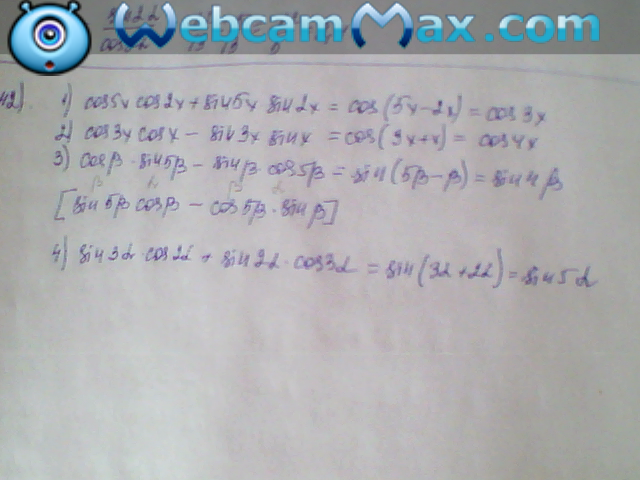 WebcamMax.com
42).
1) cos5x cos2x + sin5x sin2x = cos(5x-2x) = cos3x
2) cos3x cosx - sin3x sinx = cos(3x+x) = cos4x
3) cosβ · sin5β - sinβ · cos5β = sin(5β-β) = sin4β
[sin5β cosβ - cos5β · sinβ]
4) sin3α · cos2α + sin2α · cos3α = sin(3α+2α) = sin5α